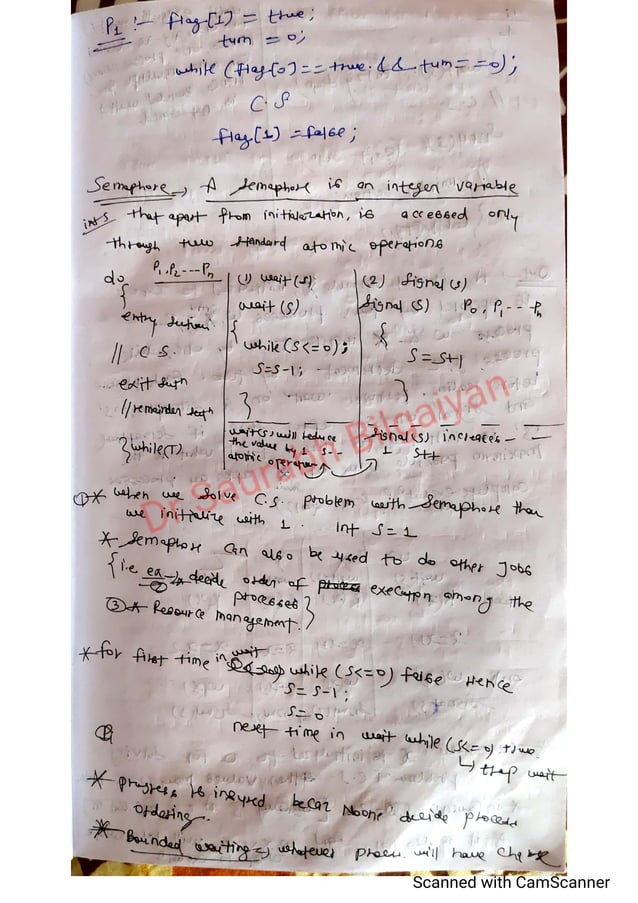 P1 :- flag[1] = true;
turn = 0;
while (flag[0] == true && turn == 0);
C.S
flag[1] = false;
Semaphore → A semaphore is an integer variable
int S that apart from initialization, is accessed only
through two standard atomic operations
do P1, P2 --- Pn
{
entry section
// C.S.
exit
// remainder
} while(T)
(1) wait(s)
wait(S)
{
while(S<=0);
S=S-1;
}
wait(s) will reduce
the value by 1 S--
atomic operation
(2) Signal(s)
Signal(S) P0, P1 --- Pn
{
S=S+1
}
Signal(s) increases
1 S++
Dr Saurabh Bilgaiyan
① * when we solve C.S. problem with Semaphore than
we initialize with 1. int S = 1
* Semaphore can also be used to do other jobs
{ i.e ex → ② decide order of execution among the
processes }
③ * Resource management.
* for first time in wait while (S<=0) false Hence
S = S-1;
S = 0
next time in wait while (S<=0) true
↳ trap wait
* progress is insured becaz Noone decide process
ordering.
* Bounded waiting → whatever process will have
Scanned with CamScanner